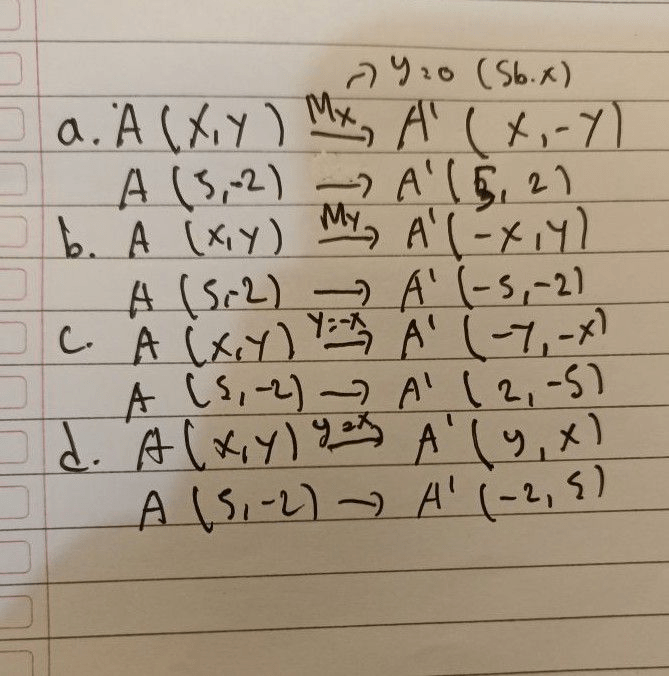 → y=0 (Sb.x)
a. A (X,Y) Mx→ A' (x,-Y)
A (5,-2) → A' (5, 2)
b. A (x,y) My→ A' (-x,y)
A (5,-2) → A' (-5,-2)
c. A (x,y) Y=-x→ A' (-Y,-x)
A (5,-2) → A' (2,-5)
d. A (x,y) y=x→ A' (y,x)
A (5,-2) → A' (-2,5)